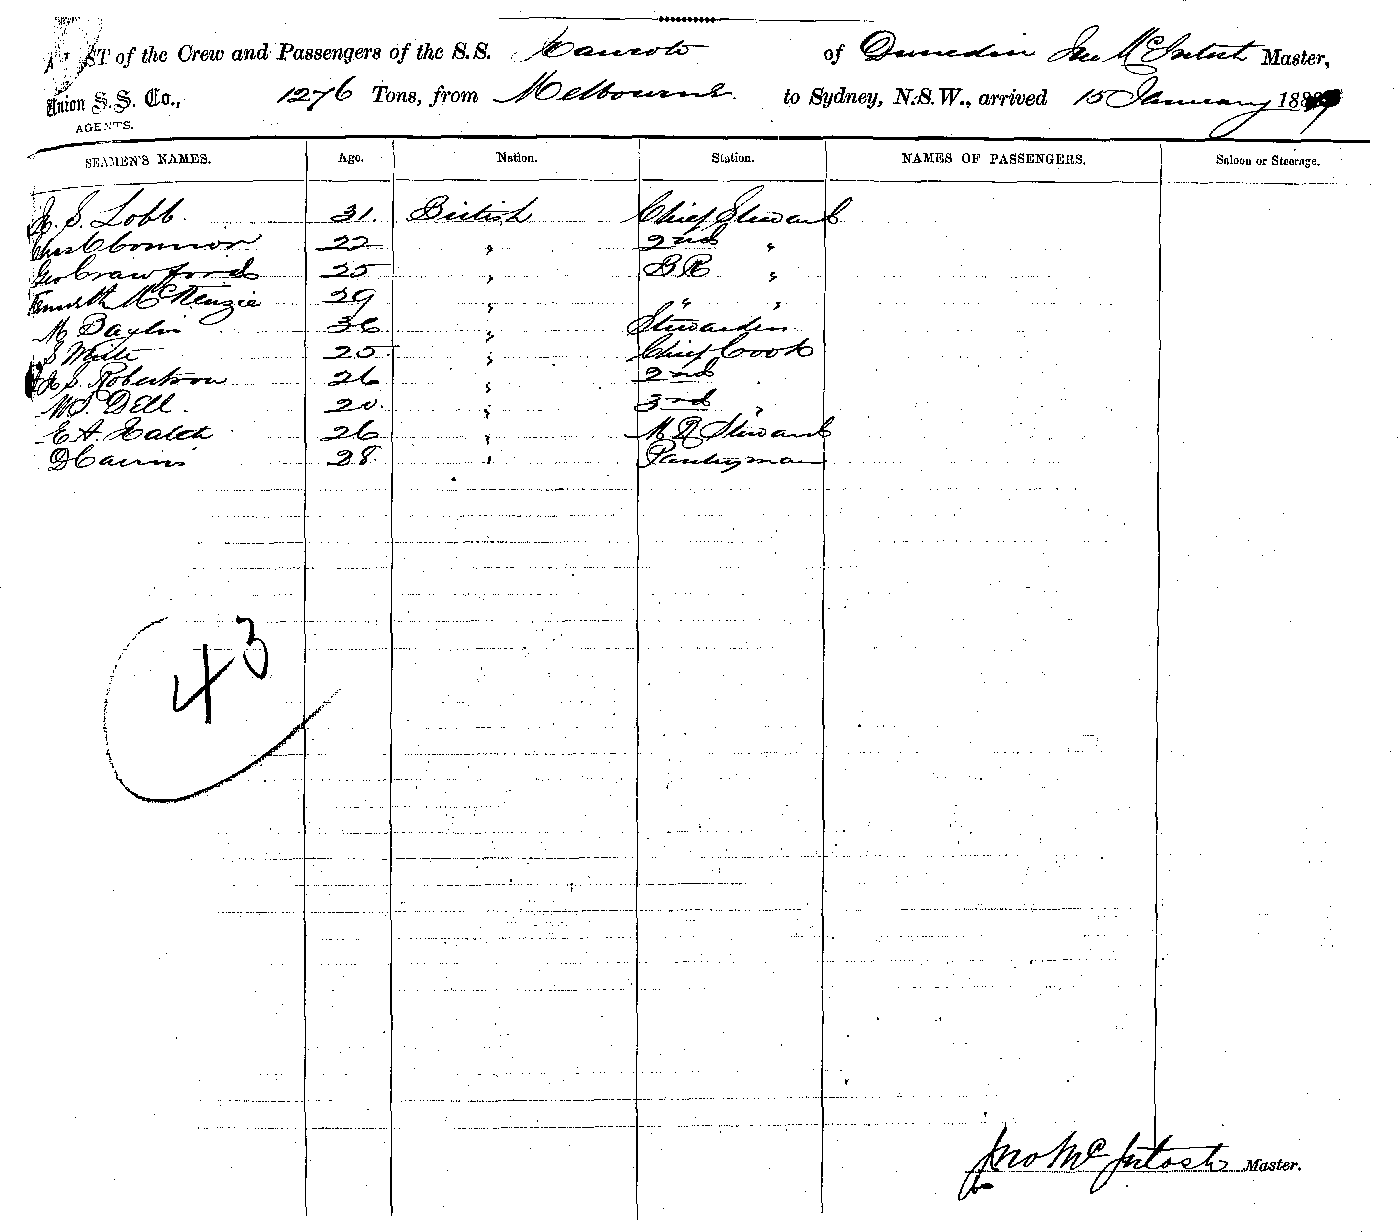 LIST of the Crew and Passengers of the S.S. of Dunedin Jno McIntosh Master,
Union S. S. Co., 1276 Tons, from Melbourne to Sydney, N.S.W., arrived 15 January 188
AGENTS.
SEAMEN'S NAMES. Age. Nation. Station. NAMES OF PASSENGERS. Saloon or Steerage.
S. Lobb. 31. British Chief Steward
Chas OConnor 22 " 2nd "
Geo Crawford 25 " B R "
Kenneth McKenzie 29 " " "
M 36 " Stewardess
S 25 " Chief Cook
S. Robertson 26 " 2nd
W. S. Dell. 20. " 3rd "
E A. 26 " M R Steward
D Cairns 28. " Pantryman
43
Jno McIntosh Master.